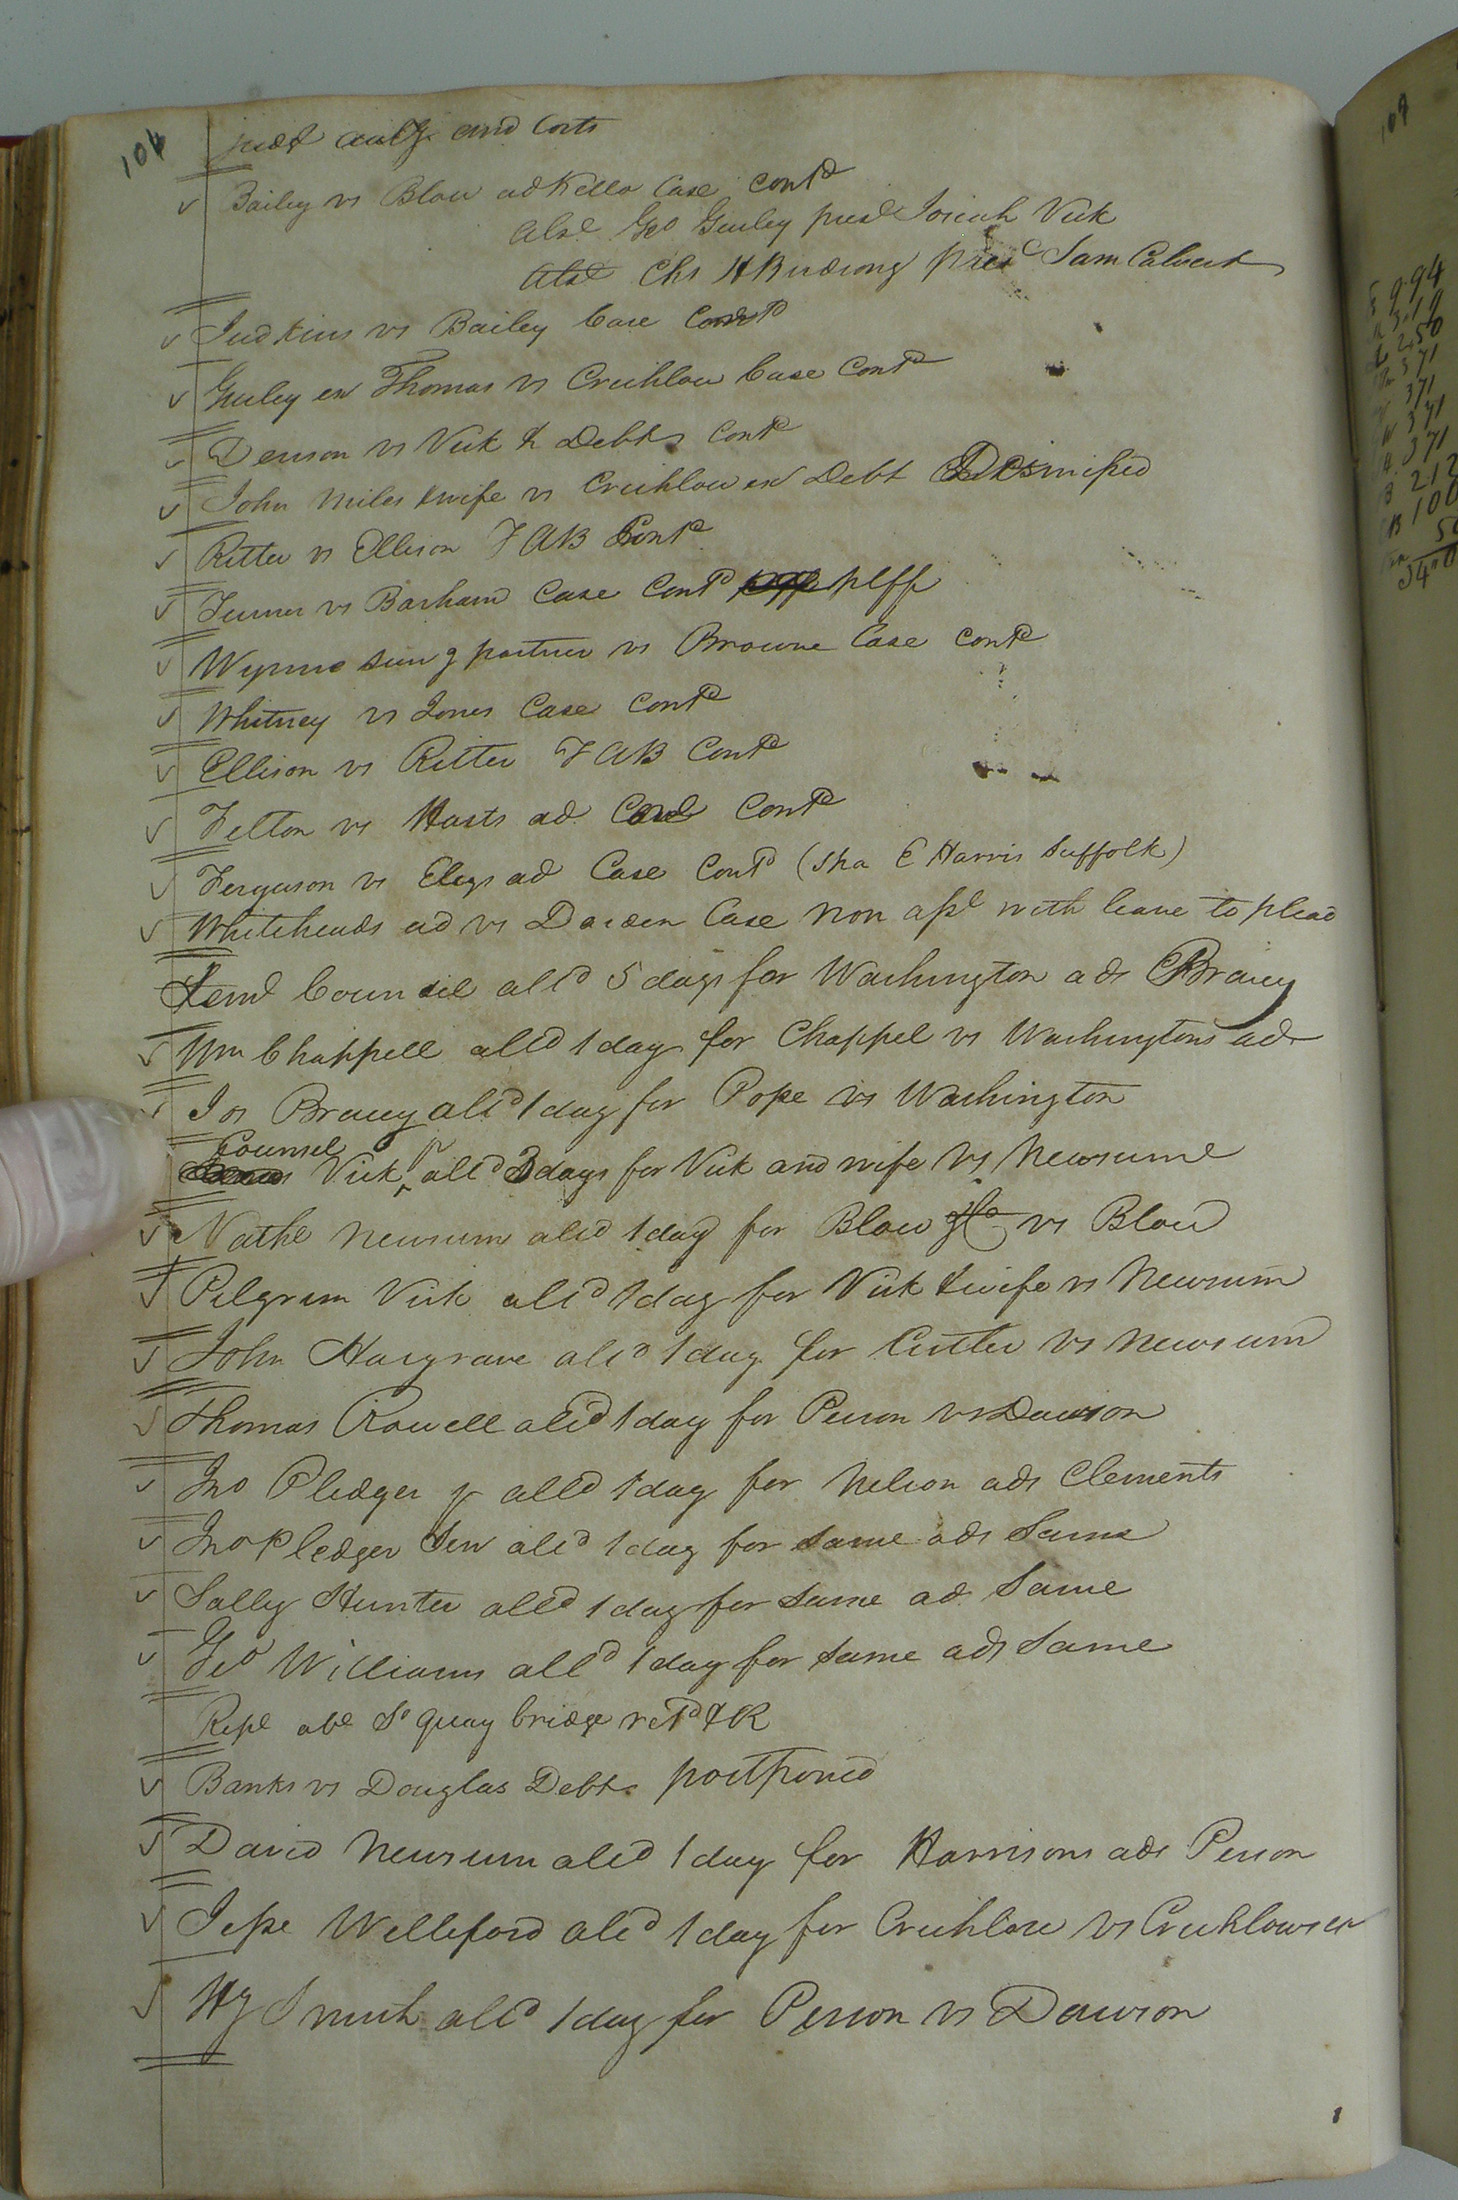 judt accdg and Costs
Bailey vs Blow ad Kello Case Contd
Abst Geo Gurley prest Josiah Vick
Abst Chs H Budsong prest Sam Calvert
Judkins vs Bailey Case Contd
Gurley ex Thomas vs Crichlow Case Contd
Denson vs Vick & Debts Contd
John Miles & wife vs Crichlow ex Debt Dismissed
Ritter vs Ellison TAB Contd
Turner vs Barham Case Contd plff
Wynne surv g partner vs Browne Case Contd
Whitney vs Jones Case Contd
Ellison vs Ritter TAB Contd
Felton vs Harts ad Case Contd
Ferguson vs Eleys ad Case Contd (Sha E Harris Suffolk)
Whiteheads ad vs Darden Case Non asst with leave to plead
Council alld 5 days for Washington ads Bracy
Wm Chappell alld 1 day for Chappel vs Washingtons ad
Jos Bracy alld 1 day for Pope vs Washington
Counsel Vick jr alld 3 days for Vick and wife vs Newsume
Nathl Newsum alld 1 day for Blow vs Blow
Pilgrim Vick alld 1 day for Vick & wife vs Newsum
John Hargrave alld 1 day for Cutler vs Newsum
Thomas Rowell alld 1 day for Person vs Dawson
Jno Pledger jr alld 1 day for Nelson ads Clements
Jno Pledger Sen alld 1 day for same ads Same
Sally Hunter alld 1 day for same ad Same
Geo Williams alld 1 day for same ads Same
Rept abt So quay bridge retd & R
Banks vs Douglas Debts postponed
David Newsum alld 1 day for Harrisons ads Person
Jesse Welleford alld 1 day for Crichlow vs Crichlows ex
Hy Smith alld 1 day for Person vs Dawson
109
9.94
3.19
2.50
371
371
371
371
212
100